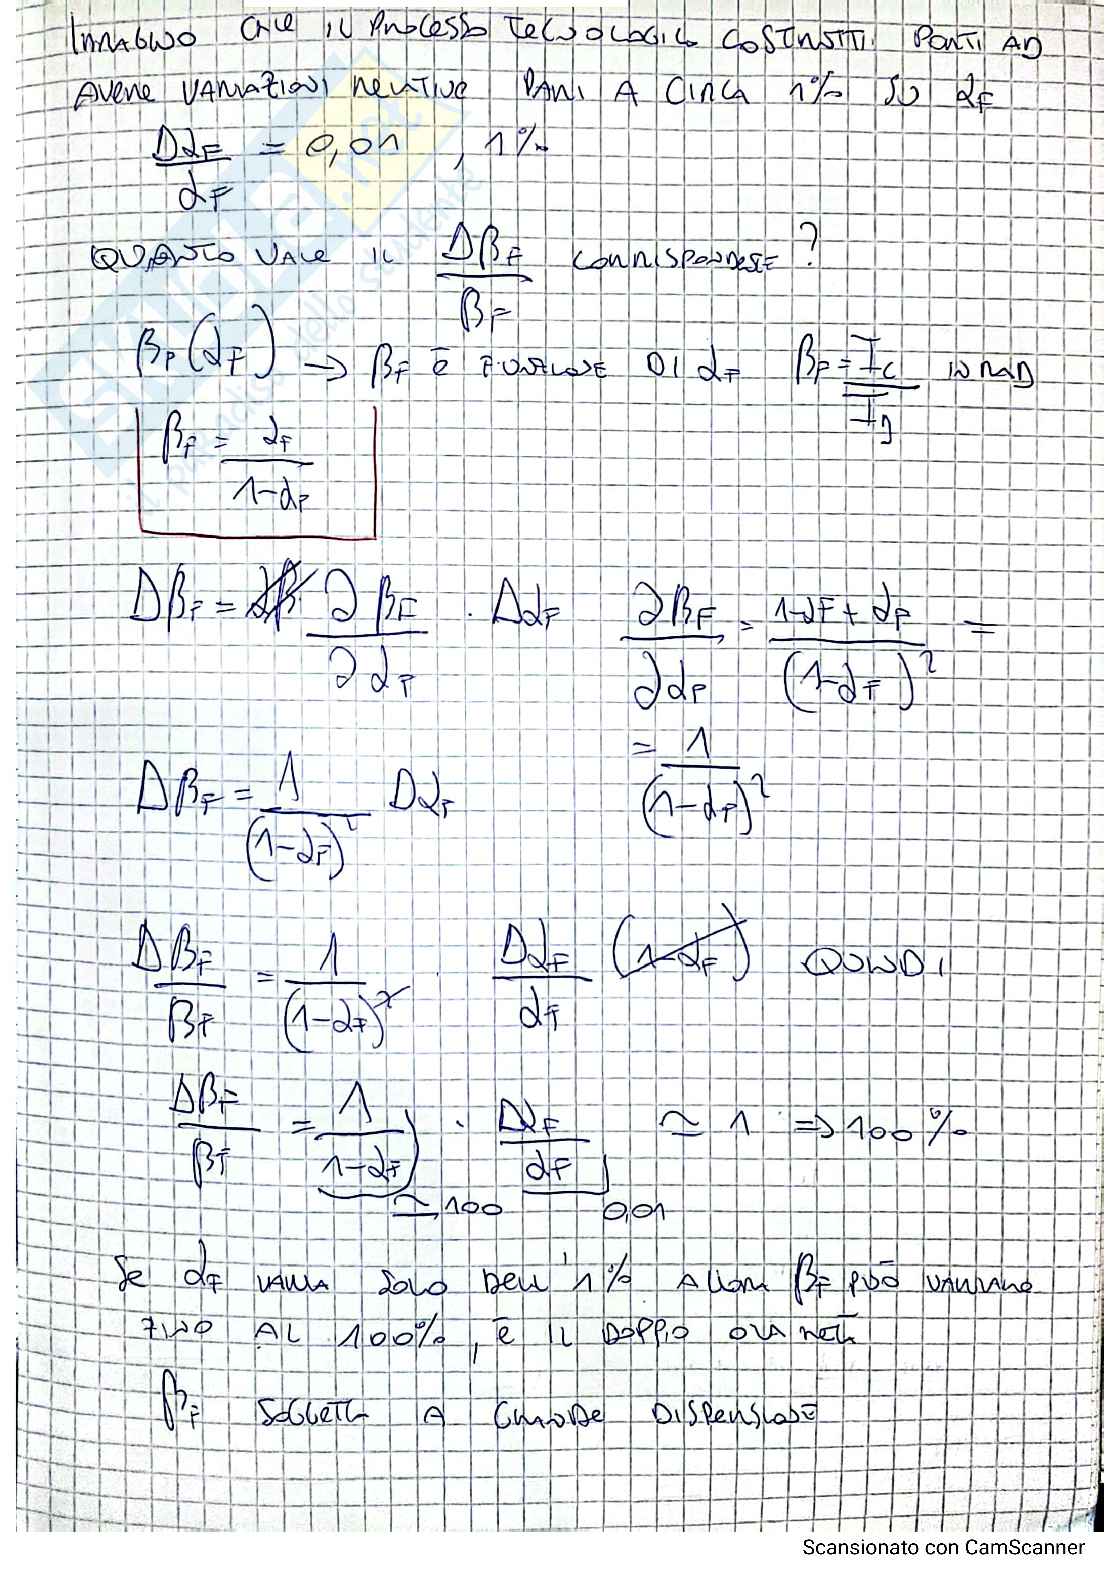 IMMAGINO CHE IL PROCESSO TECNOLOGICO COSTRUTTI. PORTI AD
AVERE VARIAZIONI RELATIVE PARI A CIRCA 1% SU αF
ΔαF/αF = 0,01 , 1%
QUANTO VALE IL ΔβF/βF CORRISPONDENTE?
βF(αF) → βF È FUNZIONE DI αF βF = IC/IB IN RAD
βF = αF/(1-αF)
ΔβF = ∂βF/∂αF · ΔαF ∂βF/∂αF = (1-αF+αF)/(1-αF)² =
= 1/(1-αF)²
ΔβF = 1/(1-αF)² ΔαF
ΔβF/βF = 1/(1-αF)² · ΔαF/αF (1-αF) QUINDI
ΔβF/βF = 1/(1-αF) · ΔαF/αF ≃ 1 ⇒ 100%
≃100 0,01
Se αF VARIA SOLO DELL'1% ALLORA βF PUÒ VARIARE
FINO AL 100%, È IL DOPPIO O LA METÀ
βF SOGGETTA A GRANDE DISPERSIONE
Scansionato con CamScanner
SKUOLA.net
il paradiso dello studente